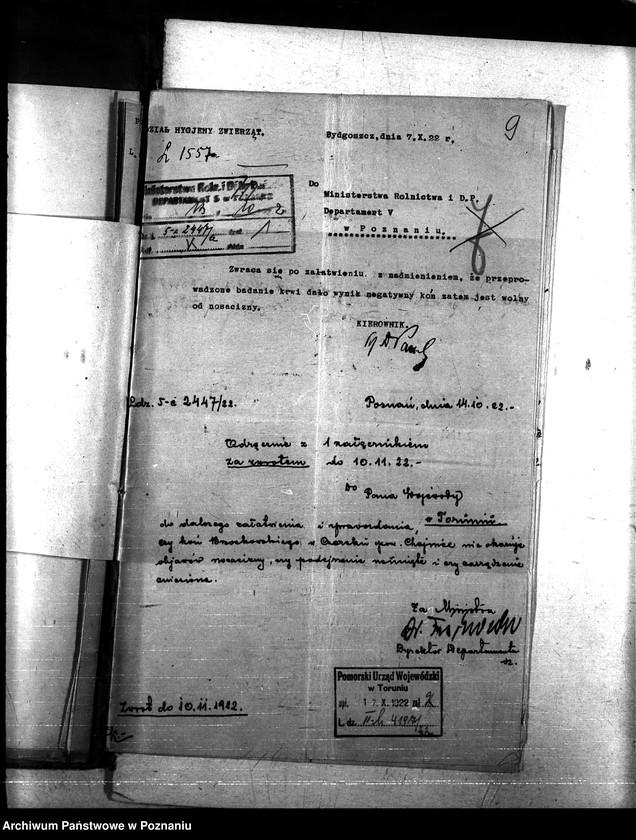 9
DZIAŁ HYGJENY ZWIERZĄT.
Bydgoszcz, dnia 7.X.22 r.
L 1557
Do
Ministerstwa Rolnictwa i D.P.
Departament V
w Poznaniu.
Ministerstwo Roln. i D.P.
DEPARTAMENT 5
5-é 2447/
1
Zwraca się po załatwieniu z nadmienieniem, że przepro-
wadzone badanie krwi dało wynik negatywny koń zatem jest wolny
od nosacizny.
KIEROWNIK.
Ldz. 5-é 2447/22.
Poznań, dnia 14.10.22.-
Odręcznie z 1 załącznikiem
za zwrotem do 10.11.22.-
Do
Pana Wojewody
w Toruniu
do dalszego załatwienia i sprawozdania,
czy koń w Czarsku pow. Chojnice nie okazuje
objawów nosacizny, czy podejrzenie usunięte i czy zarządzenie
zniesiono.
Za Ministra
Dr.
Dyrektor Departamentu
Pomorski Urząd Wojewódzki
w Toruniu
17.X.1922 zał 2
L. dz.
Zwrot do 10.11.1922.
Archiwum Państwowe w Poznaniu